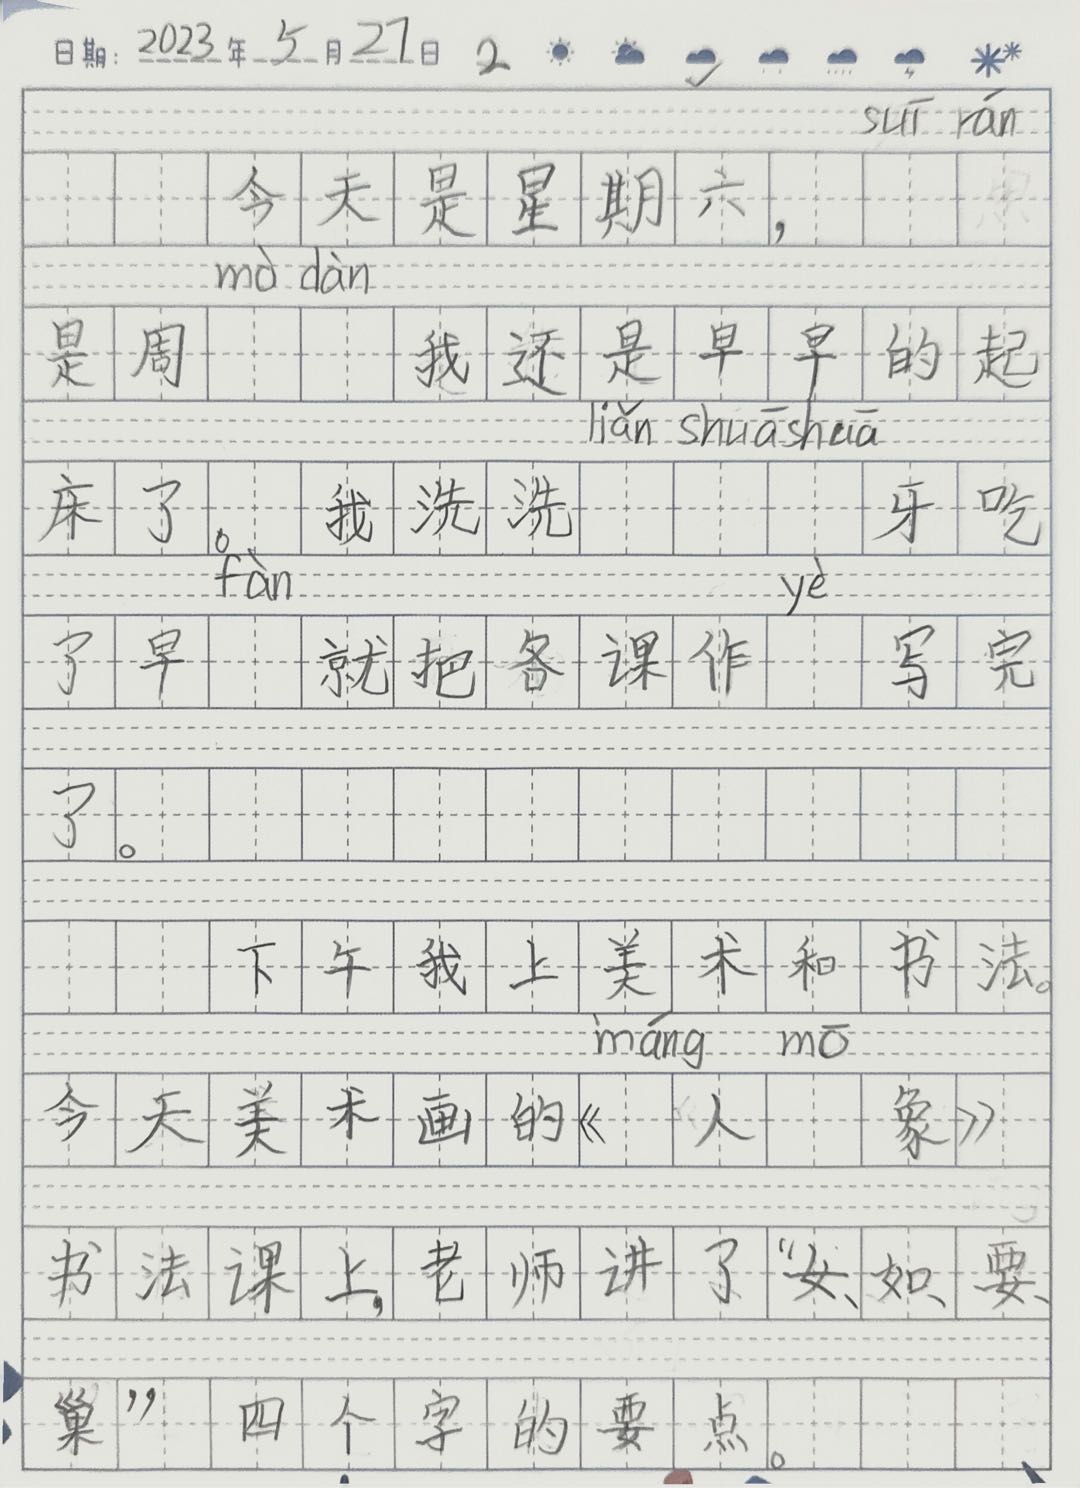 日期：2023年5月27日 2
suī rán
今天是星期六，
mò dàn
是周 我还是早早的起
liǎn shuāshuā
床了。我洗洗 牙吃
fàn yè
了早 就把各课作 写完
了。
下午我上美术和书法。
máng mō
今天美术画的《 人 象》
书法课上，老师讲了“女、如、要、
巢”四个字的要点。